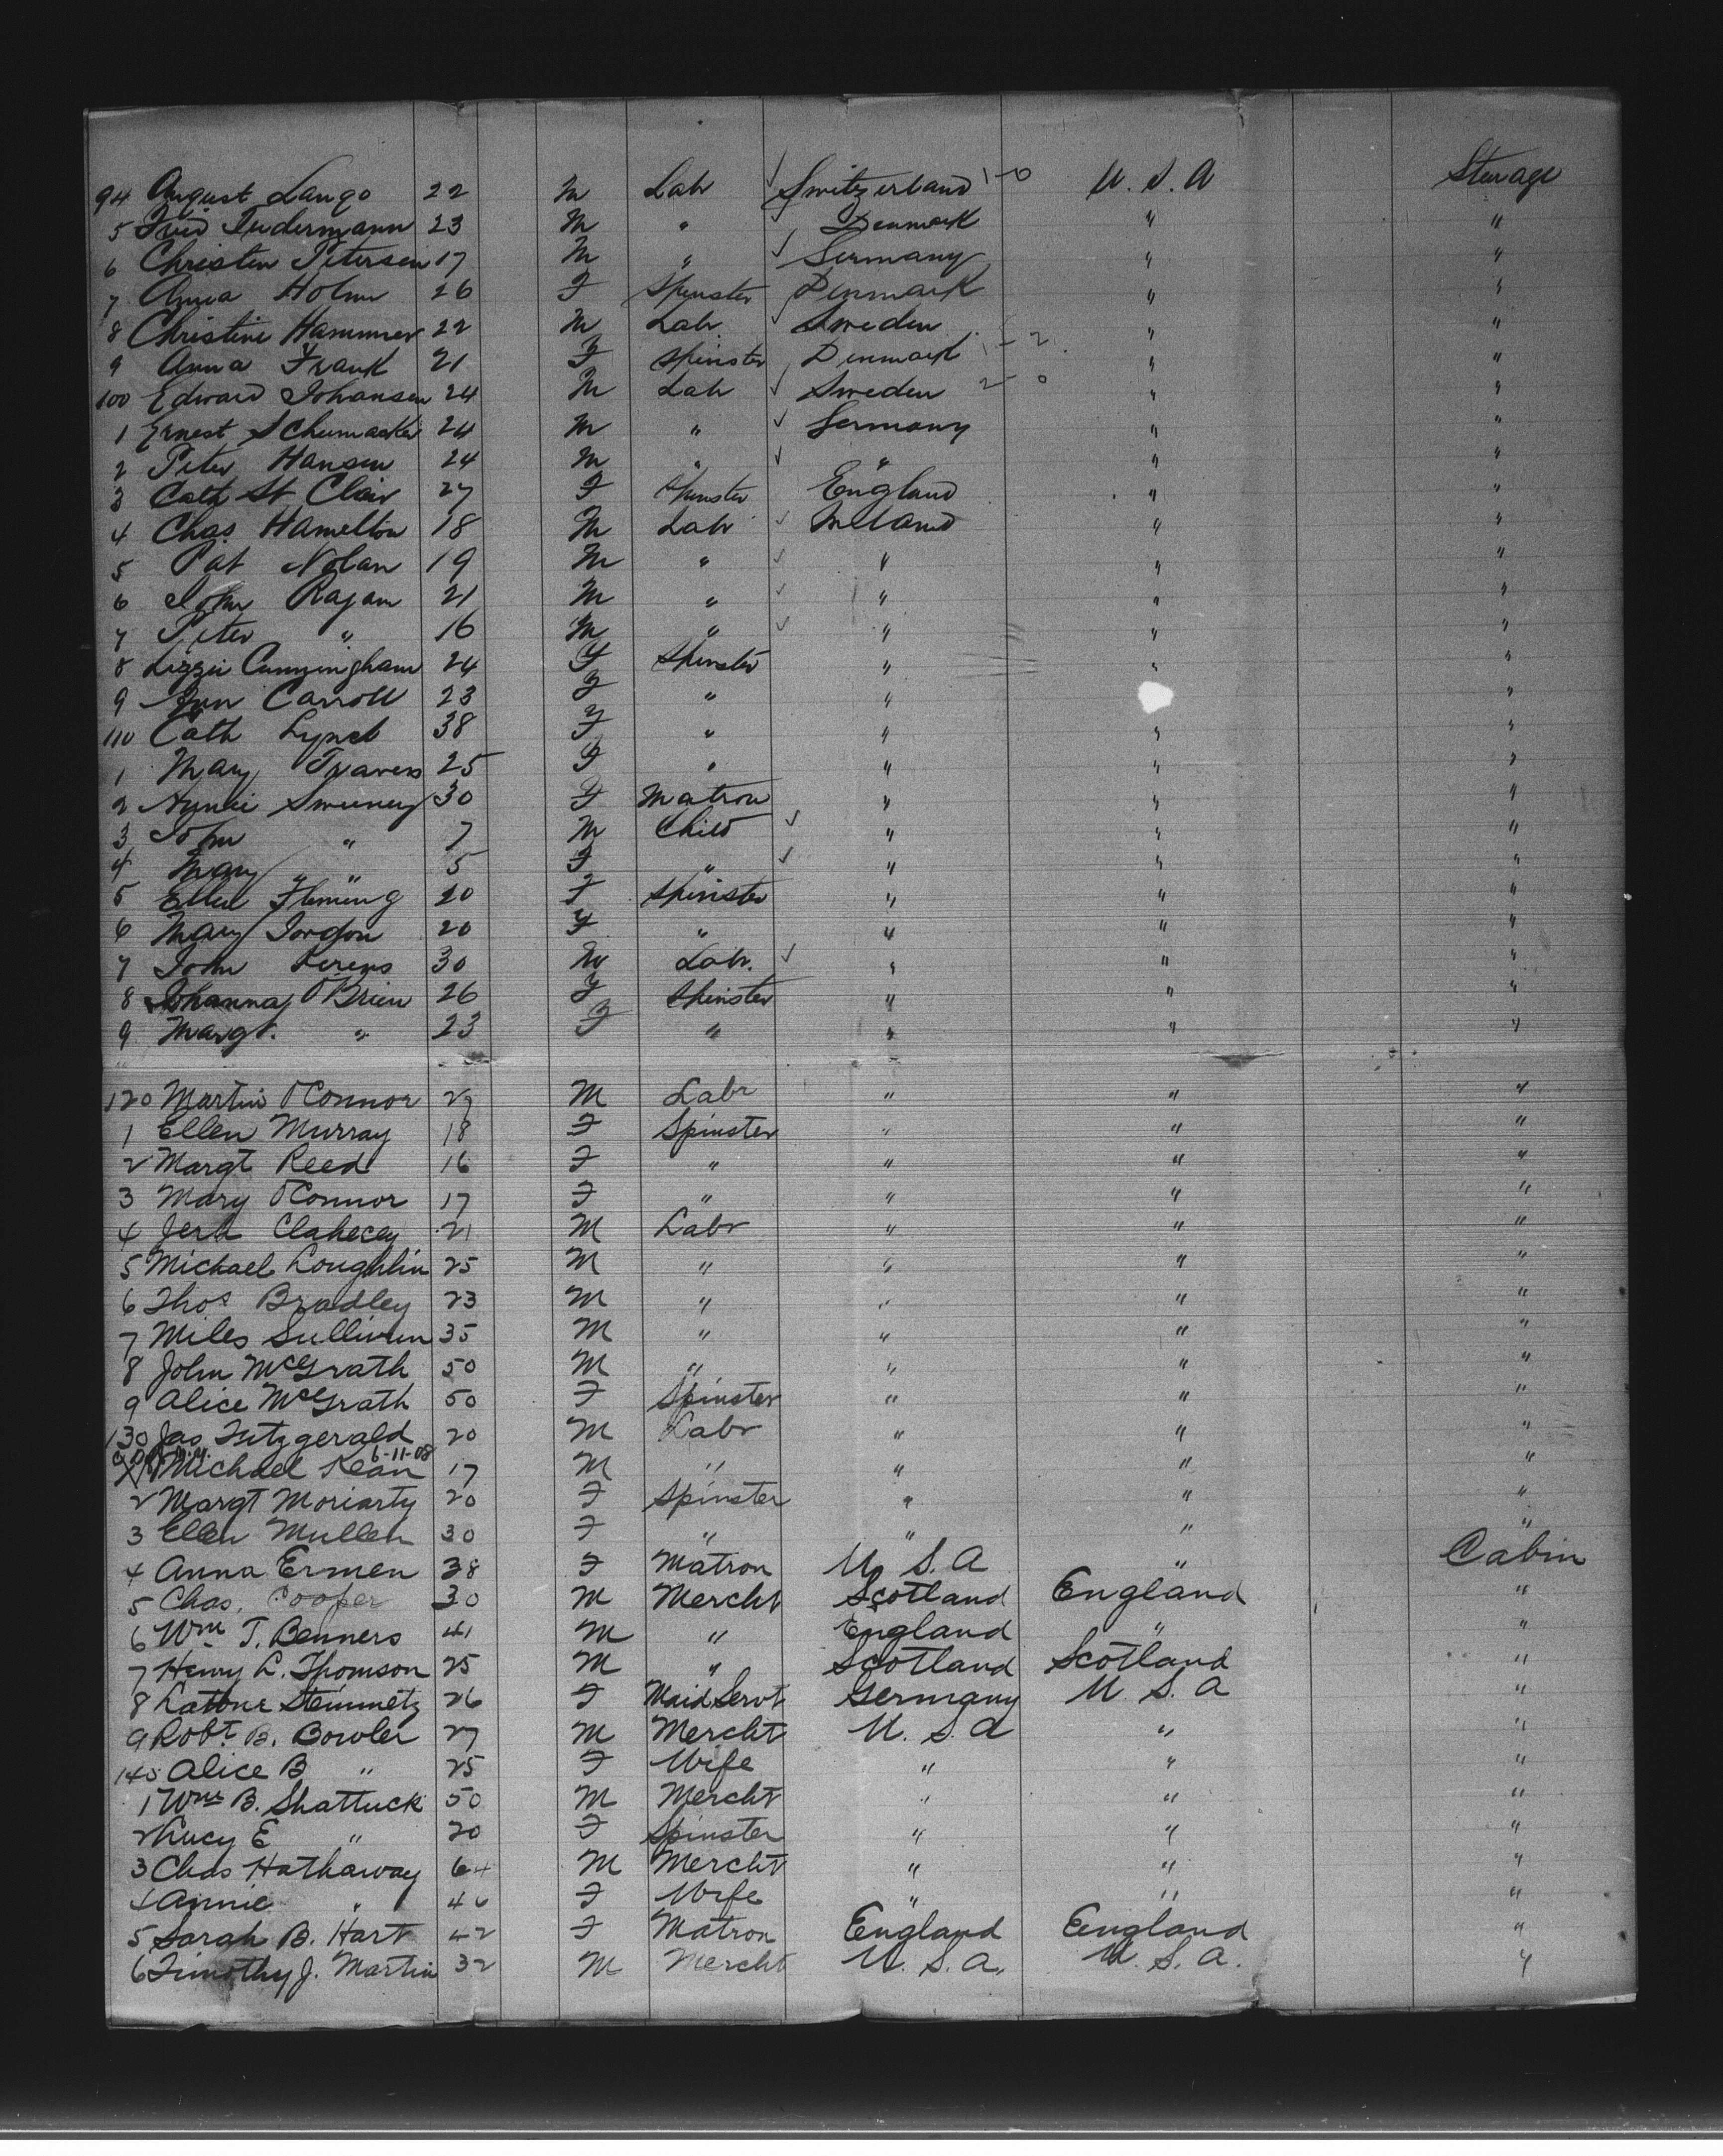 94 August Lango 22 M Lab ✓ Switzerland 1-0 U. S. A Sterage
5 Fred Ludermann 23 M " ✓ Denmark " "
6 Christen Petersen 17 M " ✓ Germany " "
7 Anna Holm 26 F Spinster Denmark " "
8 Christine Hammer 22 M Lab ✓ Sweden " "
9 Anna Frank 21 F Spinster Denmark 1-2 " "
100 Edward Johansen 24 M Lab ✓ Sweden 2-0 " "
1 Ernest Schumacker 24 M " ✓ Germany " "
2 Peter Hansen 24 M " ✓ " " "
3 Cath St Clair 27 F Spinster England " "
4 Chas. Hamelton 18 M Labr ✓ Ireland " "
5 Pat Nolan 19 M " ✓ " " "
6 John Ragan 21 M " ✓ " " "
7 Peter " 16 M " ✓ " " "
8 Lizzie Cunningham 24 F Spinster " " "
9 Ann Carroll 23 F " " "
110 Cath Lynch 38 F " " " "
1 Mary Travers 25 F " " " "
2 Annie Sweeney 30 F Matron " " "
3 John " 7 M Child ✓ " " "
4 Mary " 5 F " ✓ " " "
5 Ellen Fleming 20 F Spinster " " "
6 Mary Jordon 20 F " " " "
7 John Kerens 30 M Labr. ✓ " " "
8 Johanna O'Brien 26 F Spinster " " "
9 Margt. " 23 F " " " "
120 Martin O'Connor 27 M Labr " " "
1 Ellen Murray 18 F Spinster " " "
2 Margt Reed 16 F " " " "
3 Mary O'Connor 17 F " " " "
4 Jerh 21 M Labr " " "
5 Michael Loughlin 25 M " " " "
6 Thos Bradley 23 M " " " "
7 Miles Sullivan 35 M " " " "
8 John McGrath 50 M " " " "
9 Alice McGrath 50 F Spinster " " "
130 Jas Fitzgerald 20 M Labr " " "
6-11-08
1 Michael Kean 17 M " " " "
2 Margt Moriarty 20 F Spinster " " "
3 Ellen Mullen 30 F " " " "
4 Anna Ermen 38 F Matron U. S. A " Cabin
5 Chas. Cooper 30 M Mercht Scotland England "
6 Wm T. Benners 41 M " England " "
7 Henry L. Thomson 25 M " Scotland Scotland "
8 Steinmetz 26 F Maid Servt Germany U. S. A "
9 Robt. B. Bowler 27 M Mercht U. S. A " "
140 Alice B " 25 F Wife " " "
1 Wm B. Shattuck 50 M Mercht " " "
2 Lucy E " 20 F Spinster " " "
3 Chas Hathaway 64 M Mercht " " "
4 Annie " 40 F Wife " " "
5 Sarah B. Hart 42 F Matron England England "
6 Timothy J. Martin 32 M Mercht U. S. A. U. S. A. "